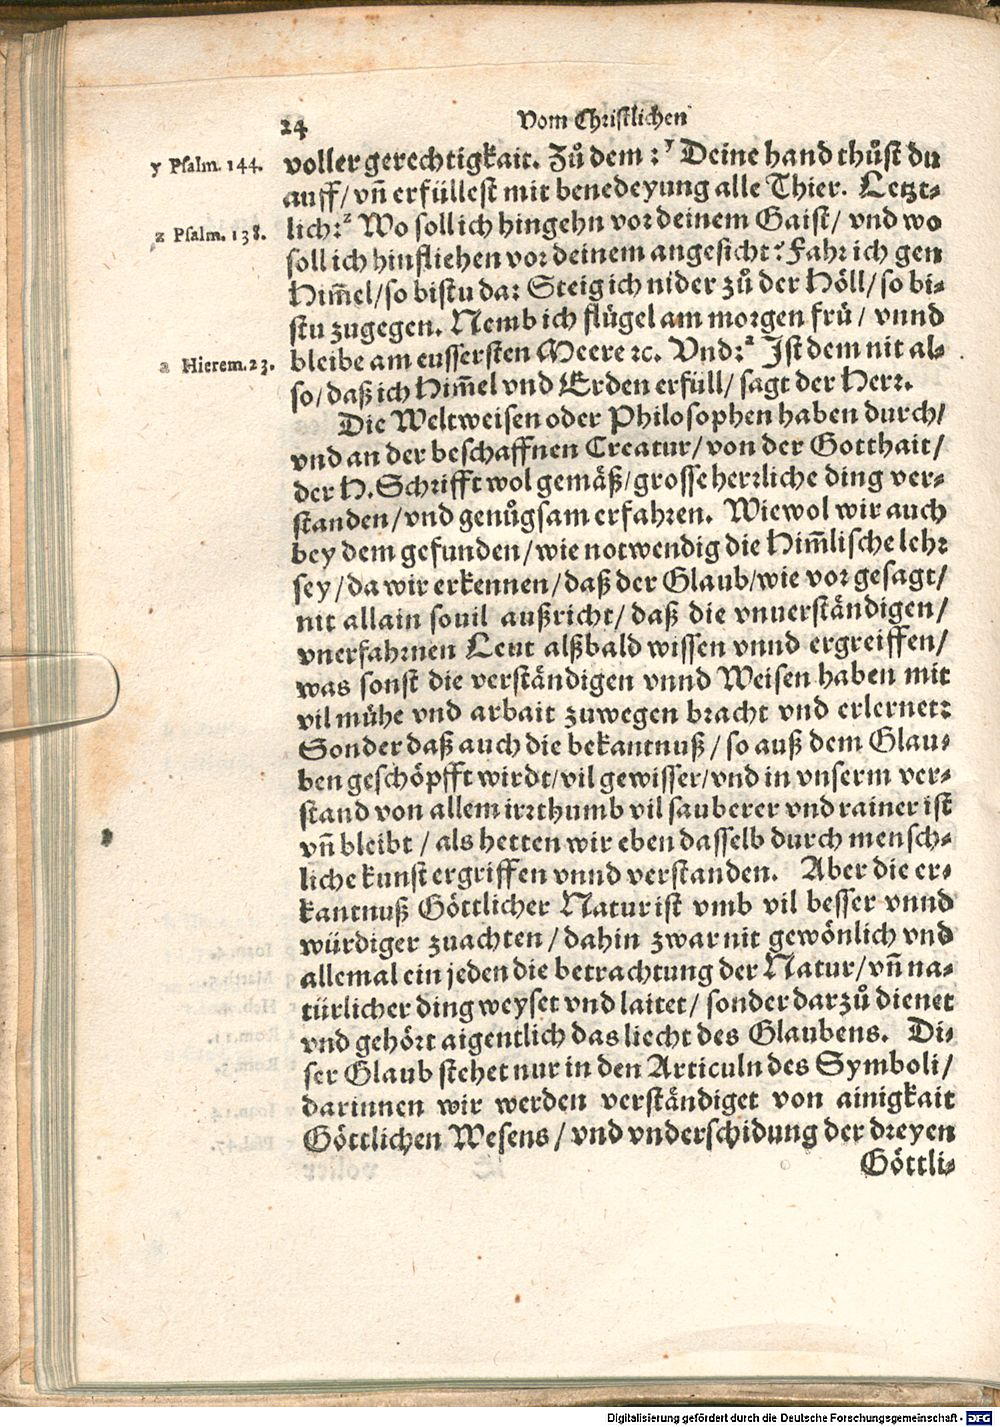 24 Vom Christlichen
y Psalm. 144. voller gerechtigkait. Zů dem: y Deine hand thůst du
auff/ vñ erfüllest mit benedeyung alle Thier. Letzt-
z Psalm. 138. lich: z Wo soll ich hingehn vor deinem Gaist/ vnd wo
soll ich hinfliehen vor deinem angesicht? Fahr ich gen
Him̃el/ so bistu da: Steig ich nider zů der Höll/ so bi-
stu zugegen. Nemb ich flügel am morgen frü/ vnnd
bleibe am eussersten Meere ꝛc. Vnd: a Ist dem nit al-
a Hierem. 23. so/ daß ich Him̃el vnd Erden erfüll/ sagt der Herr.
Die Weltweisen oder Philosophen haben durch/
vnd an der beschaffnen Creatur/ von der Gotthait/
der H. Schrifft wol gemäß/ grosse herrliche ding ver-
standen/ vnd genůgsam erfahren. Wiewol wir auch
bey dem gefunden/ wie notwendig die Him̃lische lehr
sey/ da wir erkennen/ daß der Glaub/ wie vor gesagt/
nit allain souil außricht/ daß die vnuerständigen/
vnerfahrnen Leut alßbald wissen vnnd ergreiffen/
was sonst die verständigen vnnd Weisen haben mit
vil mühe vnd arbait zuwegen bracht vnd erlernet:
Sonder daß auch die bekantnuß/ so auß dem Glau-
ben geschöpfft wirdt/ vil gewisser/ vnd in vnserm ver-
stand von allem irrthumb vil sauberer vnd rainer ist
vñ bleibt/ als hetten wir eben dasselb durch mensch-
liche kunst ergriffen vnnd verstanden. Aber die er-
kantnuß Göttlicher Natur ist vmb vil besser vnnd
würdiger zuachten/ dahin zwar nit gewönlich vnd
allemal ein jeden die betrachtung der Natur/ vñ na-
türlicher ding weyset vnd laitet/ sonder darzů dienet
vnd gehört aigentlich das liecht des Glaubens. Di-
ser Glaub stehet nur in den Articuln des Symboli/
darinnen wir werden verständiget von ainigkait
Göttlichen Wesens/ vnd vnderschidung der dreyen
Göttli-
Digitalisierung gefördert durch die Deutsche Forschungsgemeinschaft - DFG